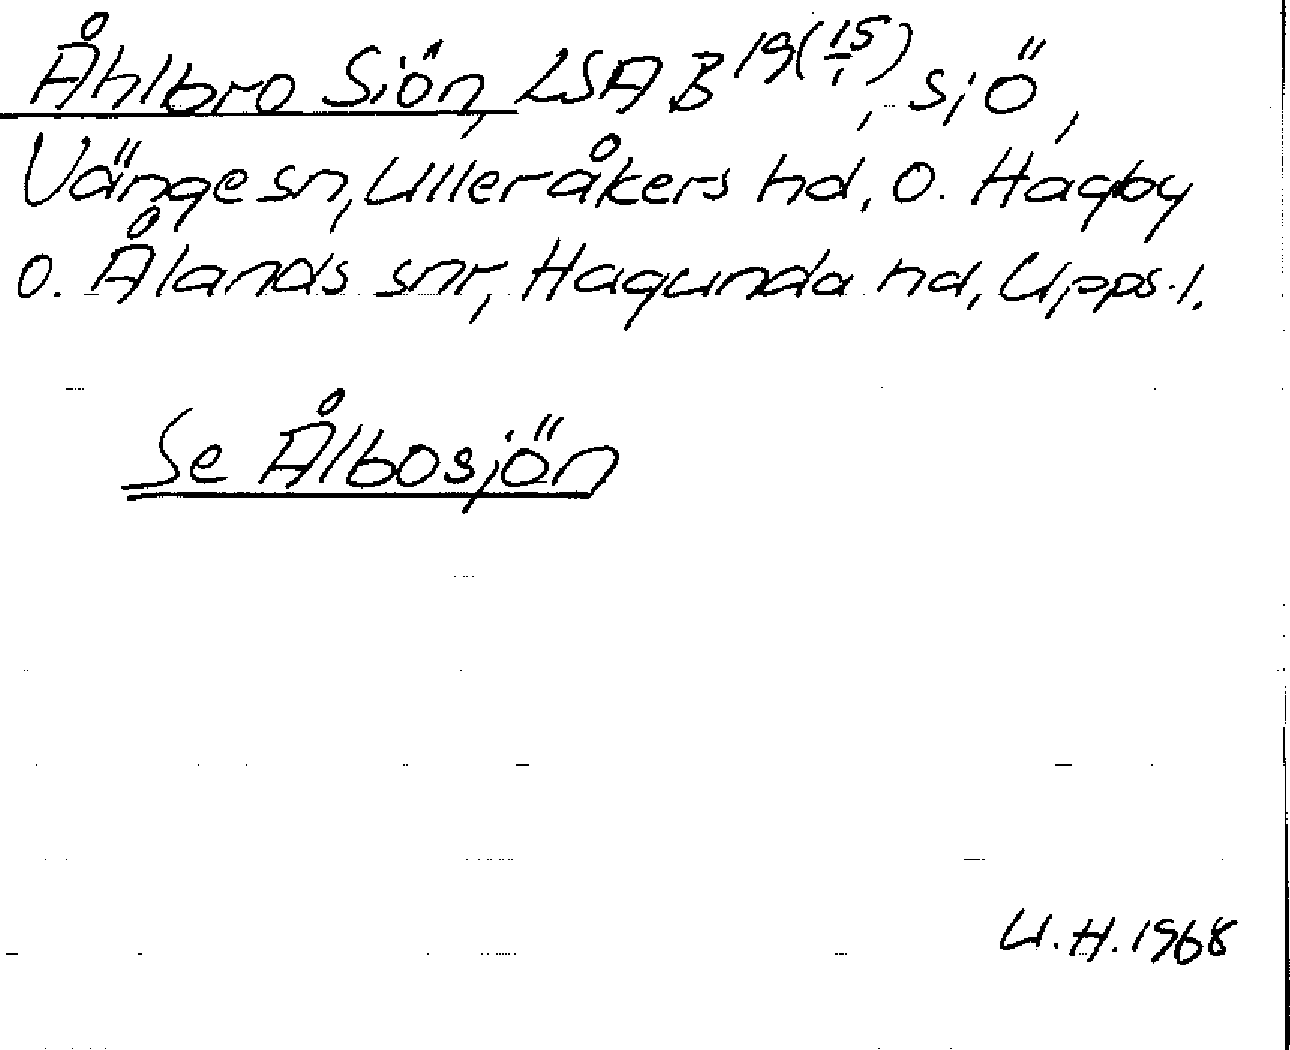 Åhlbro Siön, LSA B 19(15/1), sjö,
Vänge sn, Ulleråkers hd, o. Hagby
o. Ålands snr, Hagunda hd, Upps.l.
Se Ålbosjön
U.H. 1968